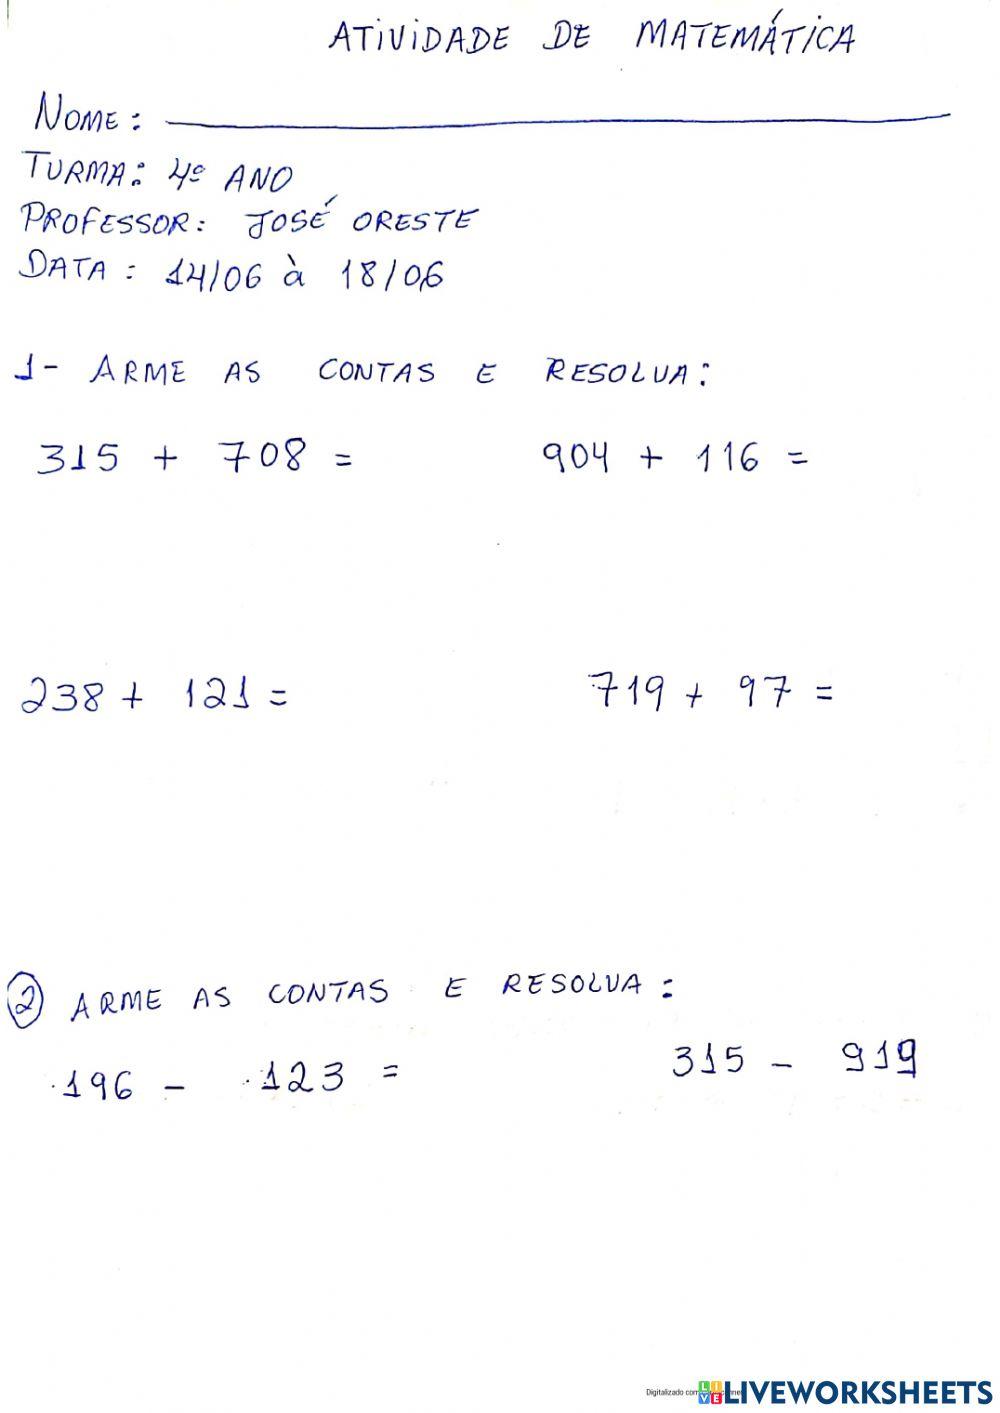 ATIVIDADE DE MATEMÁTICA
NOME:
TURMA: 4º ANO
PROFESSOR: JOSÉ ORESTE
DATA: 14/06 à 18/06
1- ARME AS CONTAS E RESOLVA:
315 + 708 = 904 + 116 =
238 + 121 = 719 + 97 =
2 ARME AS CONTAS E RESOLVA:
196 - 123 = 315 - 919
Digitalizado com
LIVEWORKSHEETS